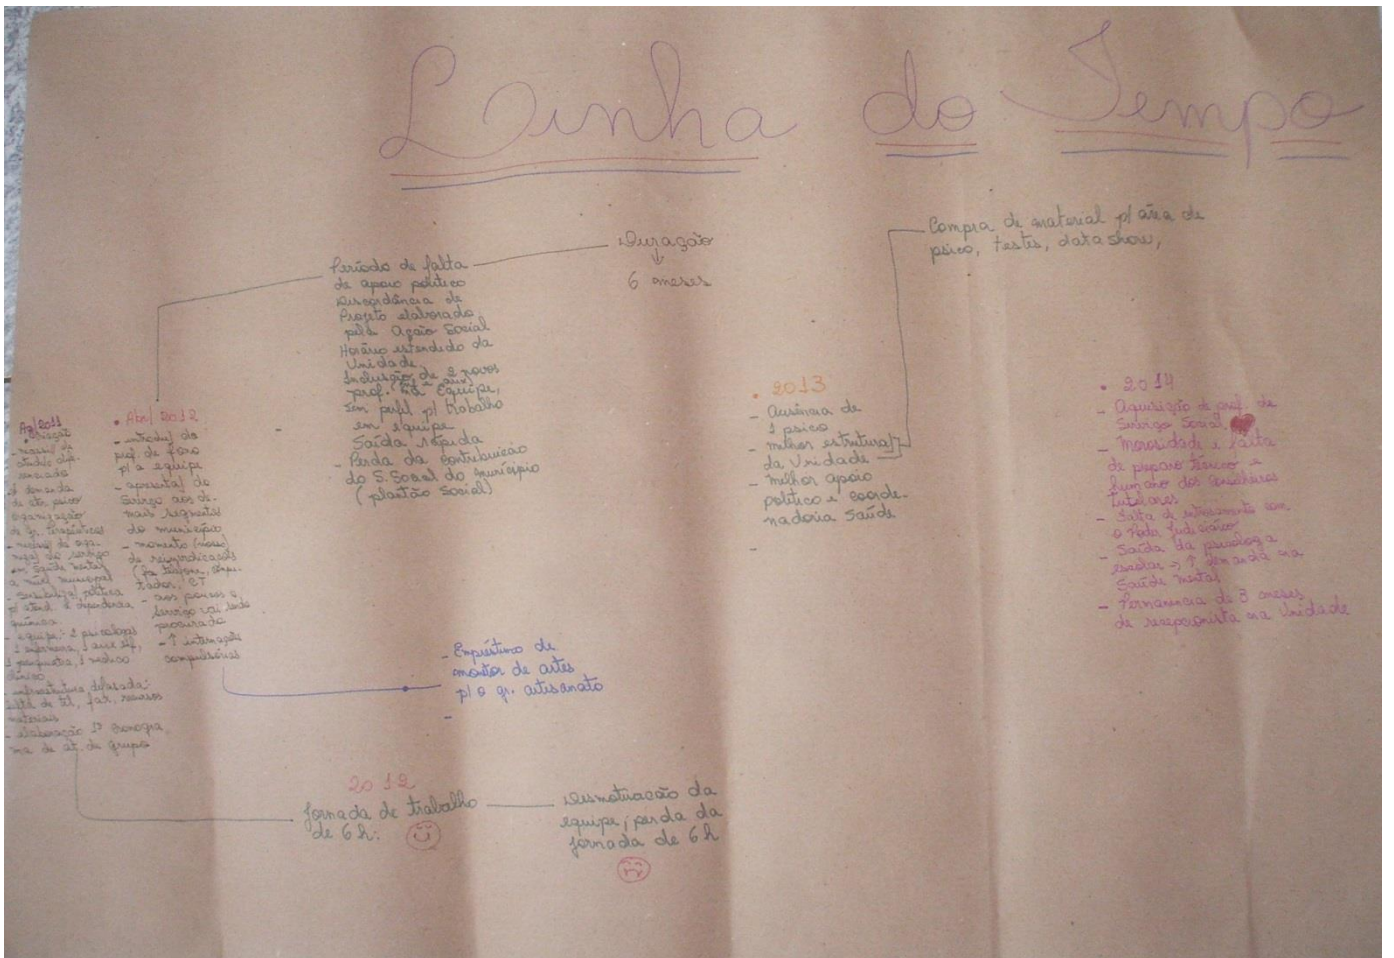 Linha do Tempo
Ag/2011
- criação
de at. psico
organização
de gr. terapêuticos
em saúde mental
a nível municipal
p/ atend. à dependência
química
- equipe: 2 psicólogas
1 enfermeira, 1 aux. enf.,
1 psiquiatra, 1 médico
clínico
- infraestrutura defasada:
falta de tel., fax, recursos
materiais
- elaboração 1º cronogra
ma de at. de grupo
• Abr/ 2012
prof. de fora
p/ a equipe
serviço aos de-
mais segmentos
do município
- momento
de reivindicações
tador, CT
- aos poucos o
serviço vai sendo
procurado
- ↑ internações
compulsórias
Período de falta
de apoio político
Discordância de
Projeto elaborado
pela Ação Social
Horário estendido da
Unidade
Inclusão de 2 novos
prof. na Equipe,
sem perfil p/ trabalho
em equipe
Saída rápida
- Perda da contribuição
do S. Social do município
(plantão Social)
Duração
↓
6 meses
- Empréstimo de
monitor de artes
p/ o gr. artesanato
-
2012
Jornada de trabalho
de 6 h:
Desmotivação da
equipe; perda da
jornada de 6 h
• 2013
- Ausência de
1 psico
- melhor estrutura
da Unidade
- melhor apoio
político e coorde-
nadoria Saúde
-
Compra de material p/ área de
psico, testes, data show,
• 2014
- Aquisição de prof. de
Serviço Social
- Morosidade e falta
de preparo técnico e
humano dos conselheiros
tutelares
- Falta de entrosamento com
o Poder Judiciário
- Saída da psicóloga
escolar → ↑ demanda na
Saúde mental
- Permanência de 3 meses
de recepcionista na Unidade